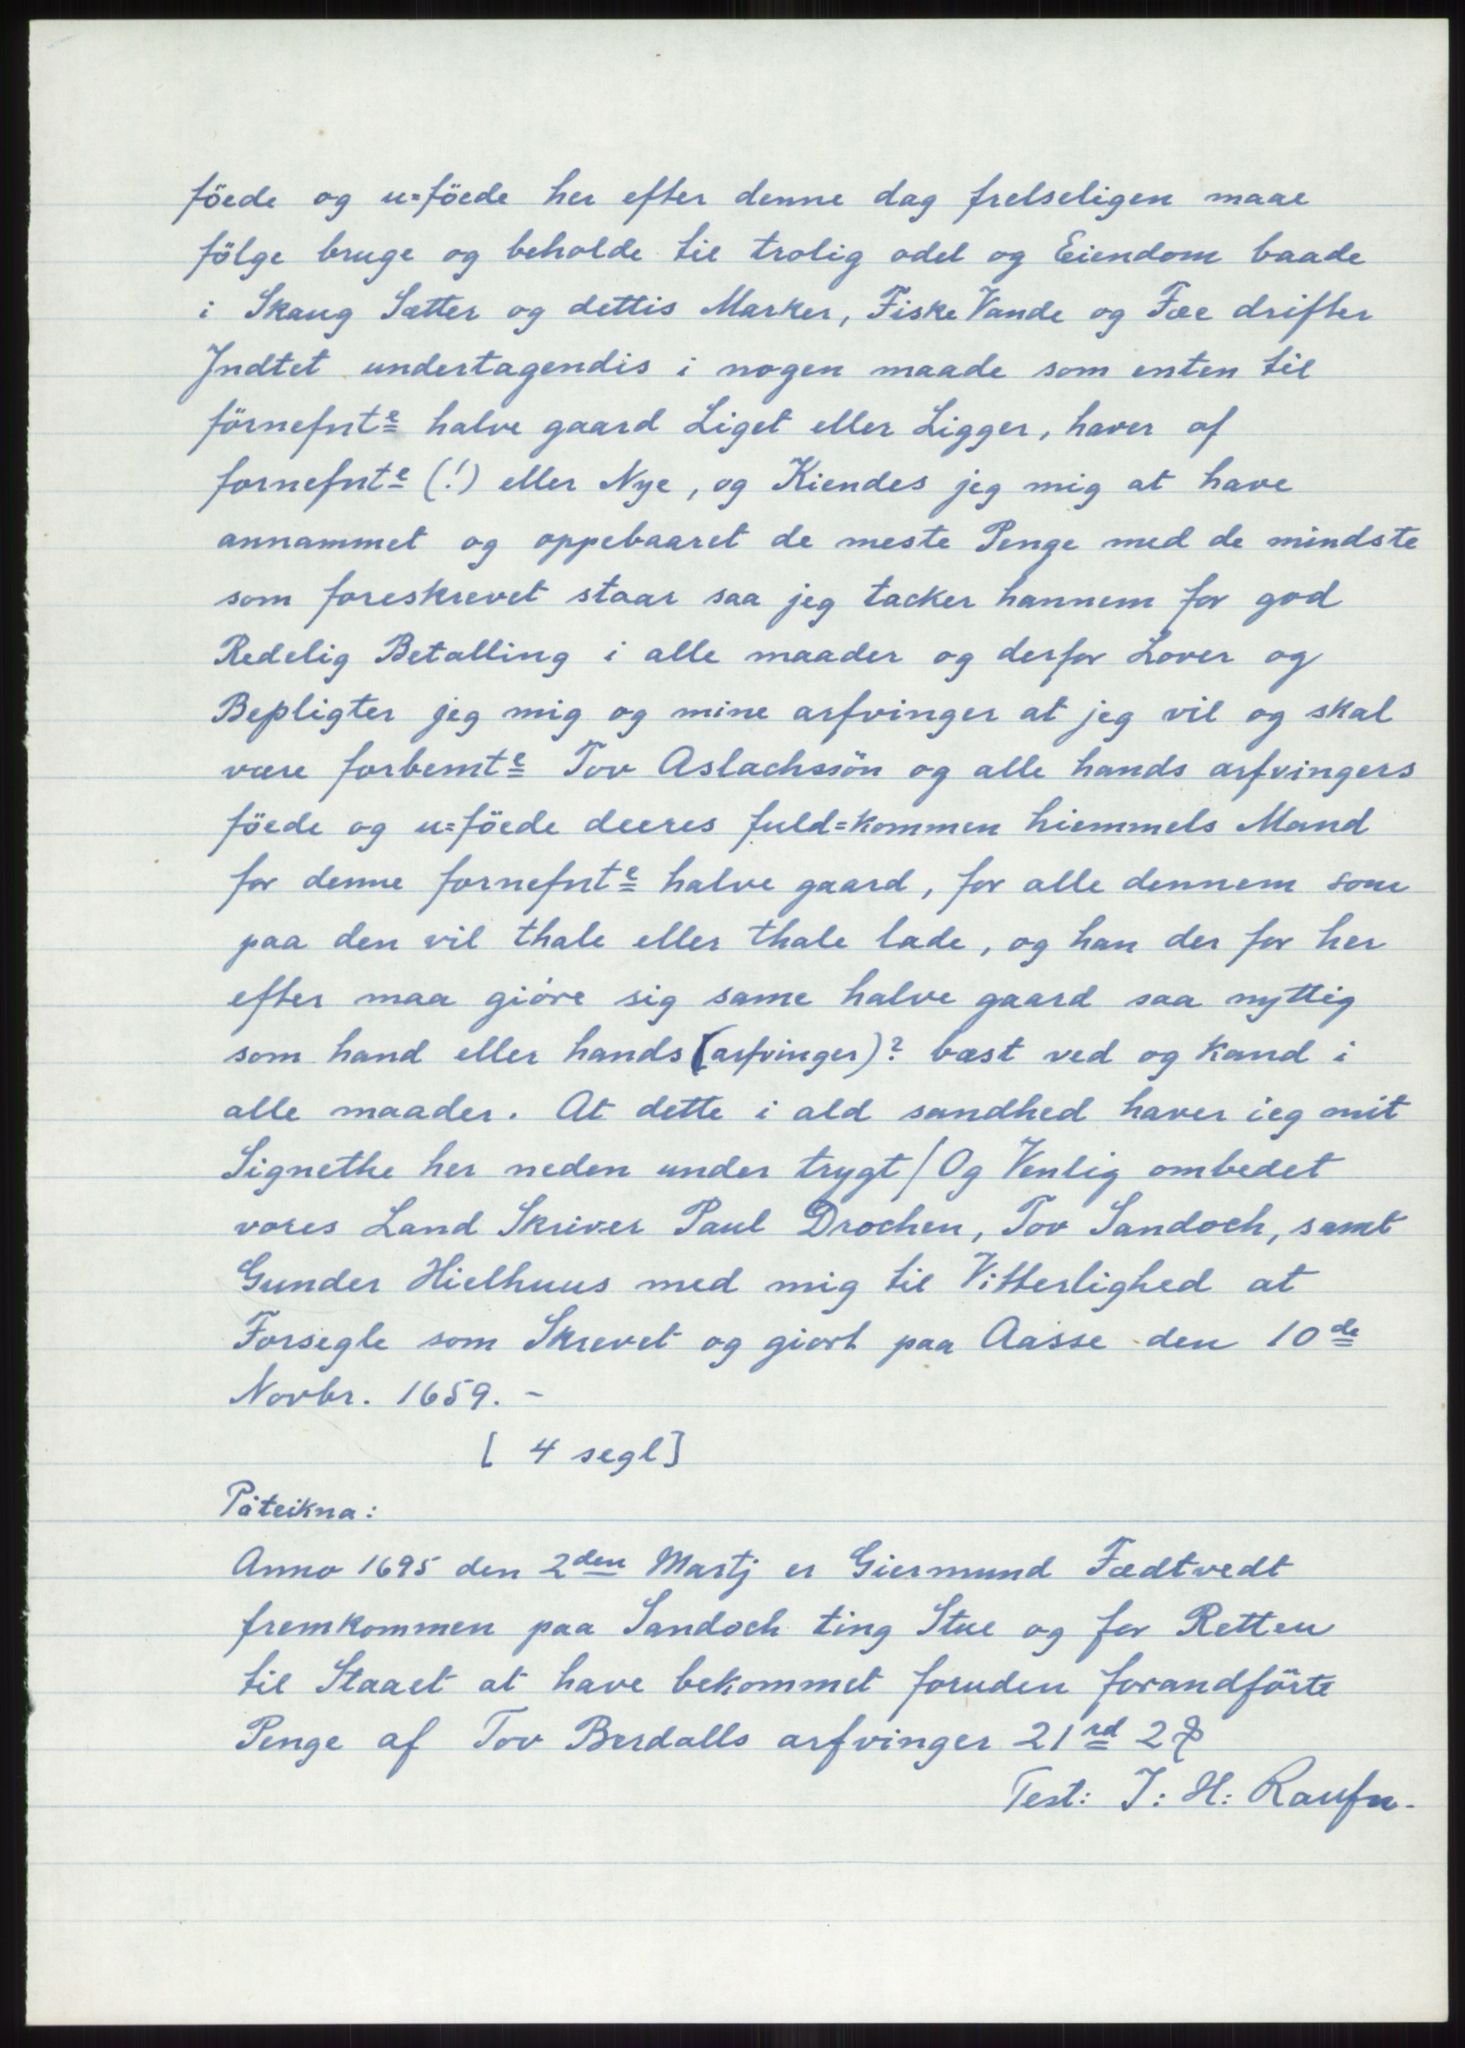 föede og u=föede her efter denne dag frelseligen maae
fölge bruge og beholde til trolig odel og Eiendom baade
i Skaug Sætter og dettis Marker, Fiske Vande og Fæe drifter
Indtet undertagendis i nogen maade som enten til
förnefnte halve gaard Liget eller Ligger, haver af
fornefnte (!) eller Nye, og Kiendes jeg mig at have
annammet og oppebaaret de meste Penge med de mindste
som foreskrevet staar saa jeg tacker hannem for god
Redelig Betalling i alle maader og derfor Lover og
Bepligter jeg mig og mine arfvinger at jeg vil og skal
være forbemte Tov Aslachssön og alle hands arfvingers
föede og u=föede deeres fuld=kommen hiemmels Mand
for denne fornefnte halve gaard, for alle dennem som
paa den vil thale eller thale lade, og han der for her
efter maa giöre sig same halve gaard saa nyttig
som hand eller hands (arfvinger)? bæst ved og kand i
alle maader. At dette i ald sandhed haver ieg mit
Signethe her neden under trygt / Og Venlig ombedet
vores Land Skriver Paul Drochen, Tov Sandoch, samt
Gunder Hielhuus med mig til Vitterlighed at
Forsegle som Skrevet og giort paa Aasse den 10de
Novbr. 1659. -
[ 4 segl]
Påteikna:
Anno 1695 den 2den Martj er Giermund Fædtvedt
fremkommen paa Sandoch ting Stue og for Retten
til Staaet at have bekommet foruden forandförte
Penge af Tov Berdalls arfvinger 21rd 2 
Test: J: H: Raufn.